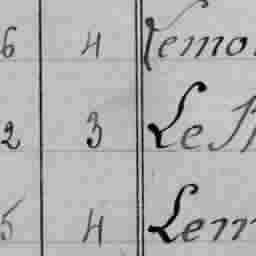 6 4 Lemo
2 3 Le
5 4 Lem